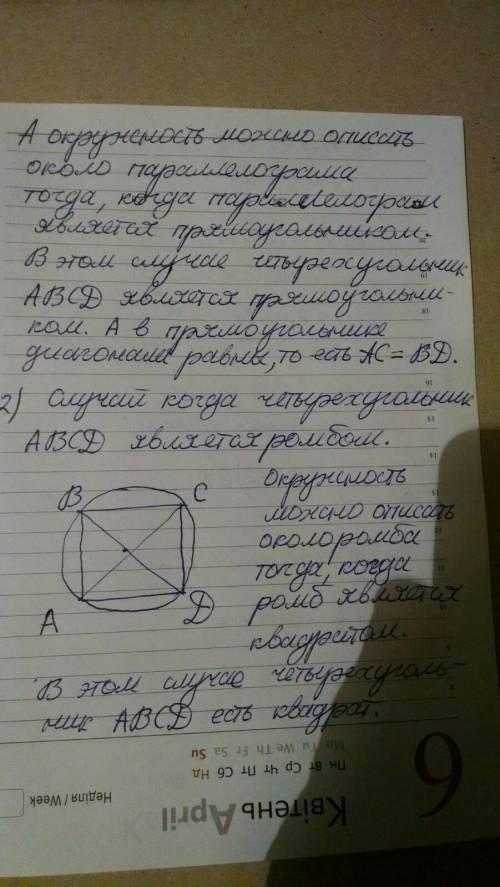 А окружность можно описать
около параллелограма
тогда, когда параллелограм
является прямоугольником.
В этом случае четырехугольник
ABCD является прямоугольни-
ком. А в прямоугольнике
диагонали равны, то есть AC = BD.
2) Случай когда четырехугольник
ABCD является ромбом.
B
C
A
D
окружность
можно описать
около ромба
тогда, когда
ромб является
квадратом.
В этом случае четырехуголь-
ник ABCD есть квадрат.
6
Mn Tu We Th Fr Sa Su
Пн Вт Ср Чт Пт Сб Нд
Квітень April
Неділя / Week